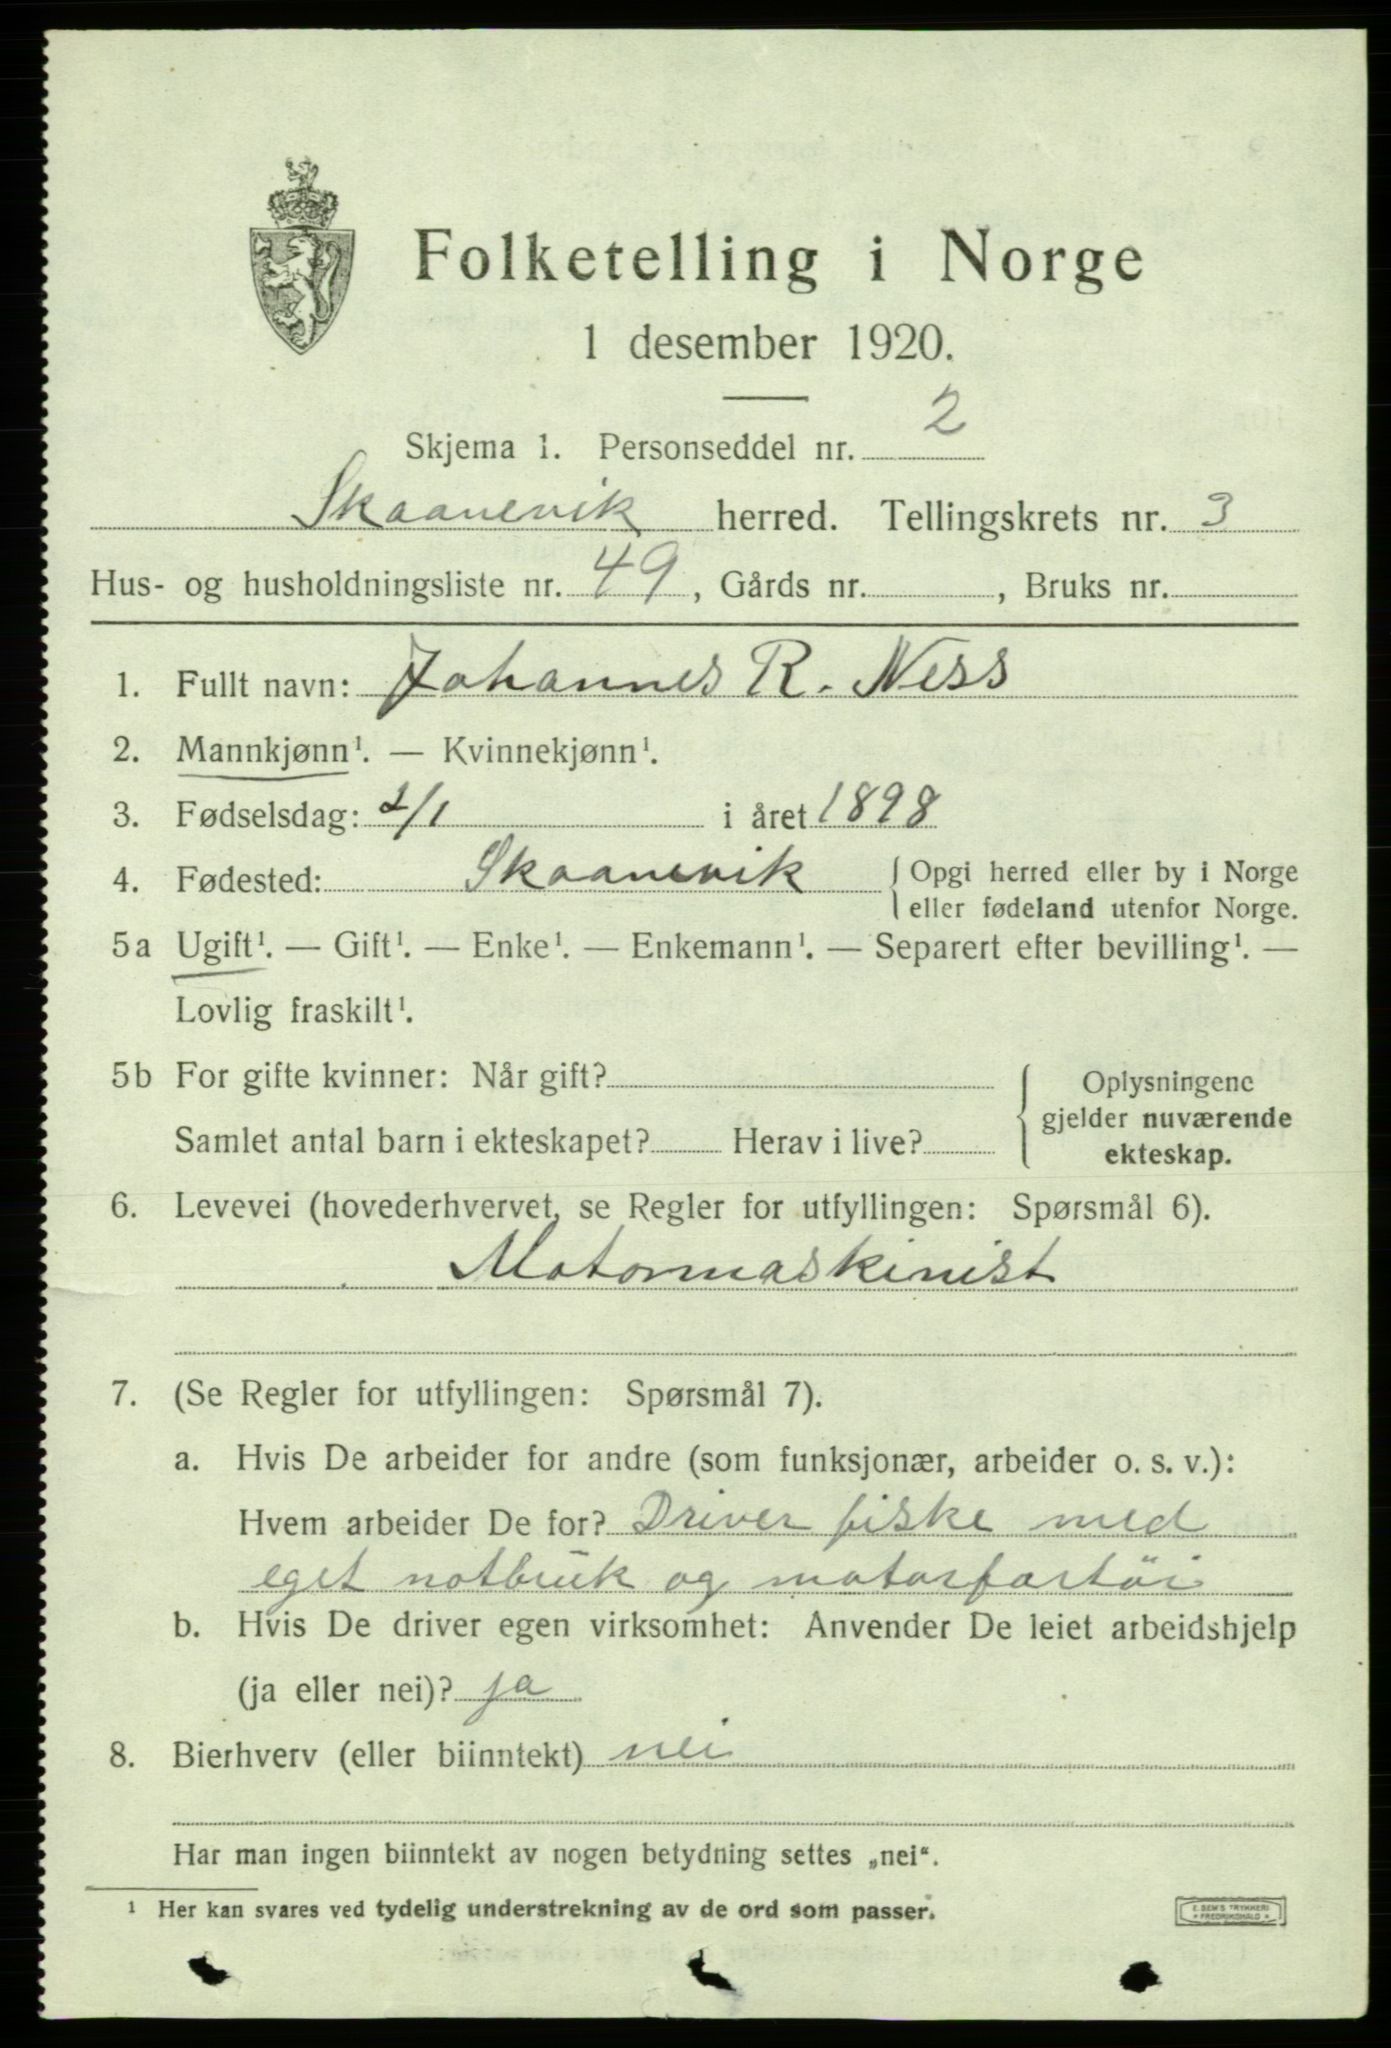 Folketelling i Norge
1 desember 1920.
Skjema 1. Personseddel nr. 2
Skaanevik herred. Tellingskrets nr. 3
Hus- og husholdningsliste nr. 49, Gårds nr. , Bruks nr.
1. Fullt navn: Johannes R. Ness
2. Mannkjønn¹. — Kvinnekjønn¹.
3. Fødselsdag: 2/1 i året 1898
4. Fødested: Skaanevik { Opgi herred eller by i Norge
eller fødeland utenfor Norge.
5a Ugift¹. — Gift¹. — Enke¹. — Enkemann¹. — Separert efter bevilling¹. —
Lovlig fraskilt¹.
5b For gifte kvinner: Når gift? { Oplysningene
gjelder nuværende
Samlet antal barn i ekteskapet? Herav i live?
ekteskap.
6. Levevei (hovederhvervet, se Regler for utfyllingen: Spørsmål 6).
Motormaskinist
7. (Se Regler for utfyllingen: Spørsmål 7).
a. Hvis De arbeider for andre (som funksjonær, arbeider o. s. v.):
Hvem arbeider De for? Driver fiske med
eget notbruk og motorfartöi
b. Hvis De driver egen virksomhet: Anvender De leiet arbeidshjelp
(ja eller nei)? ja
8. Bierhverv (eller biinntekt) nei
Har man ingen biinntekt av nogen betydning settes „nei“.
¹ Her kan svares ved tydelig understrekning av de ord som passer.
E. SEM'S TRYKKERI
* FREDRIKSHALD *